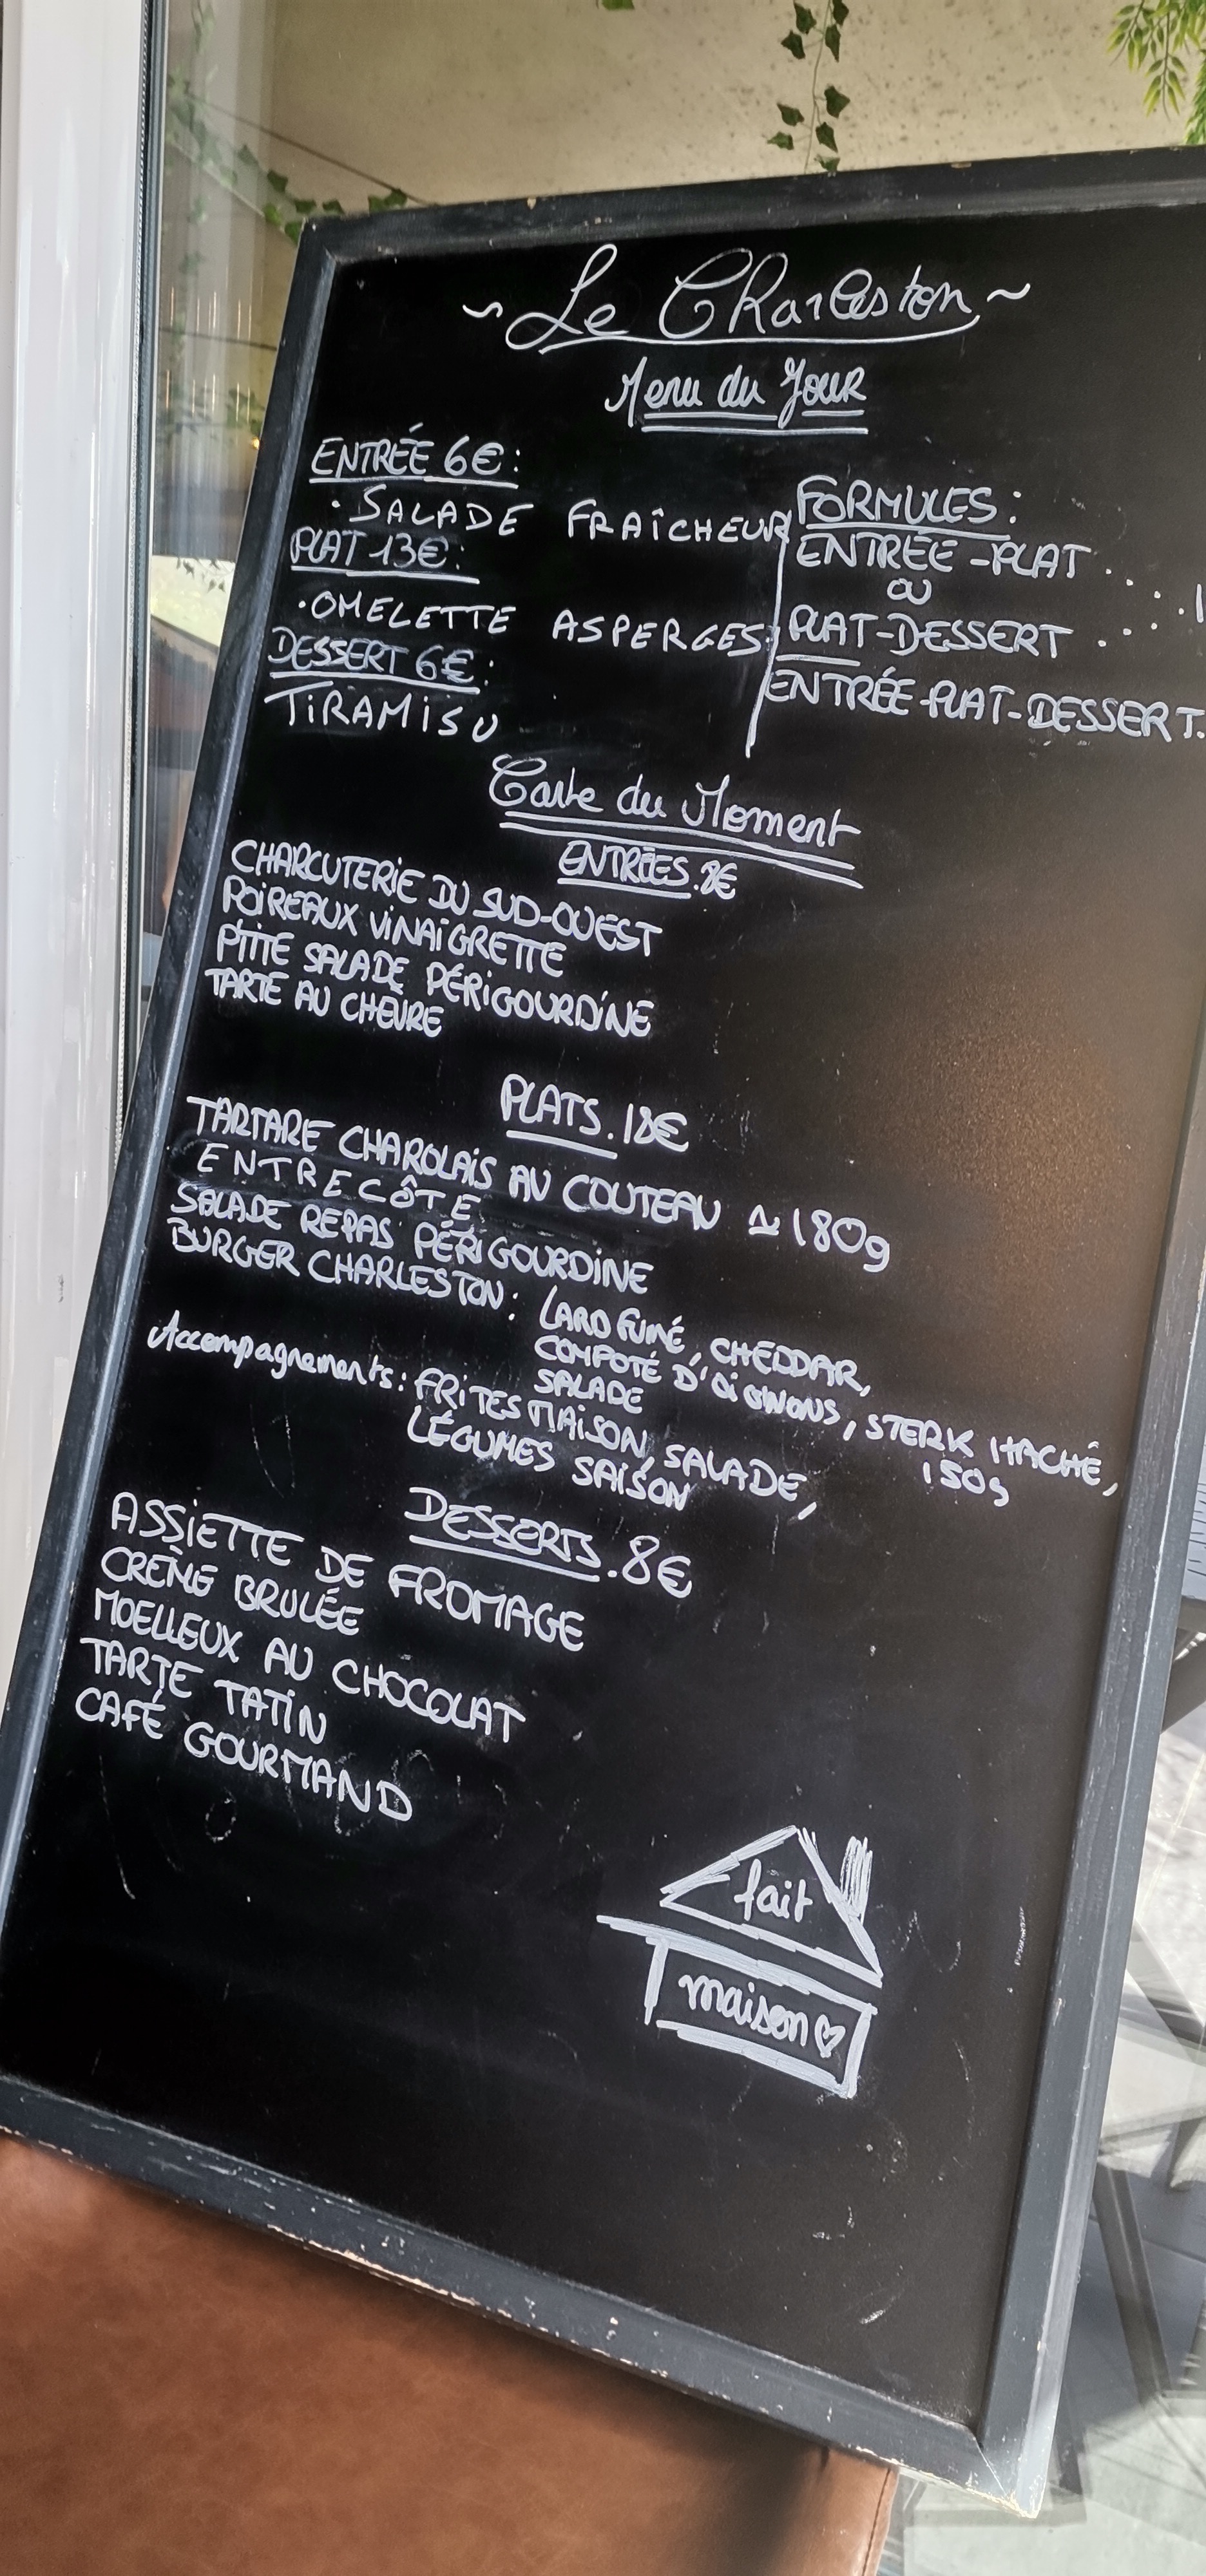 ~ Le Charleston ~
Menu du Jour
ENTRÉE 6€:
• SALADE FRAÎCHEUR
PLAT 13€:
• OMELETTE ASPERGES
DESSERT 6€:
TIRAMISU
FORMULES:
ENTRÉE-PLAT....
OU
PLAT-DESSERT....
ENTRÉE-PLAT-DESSERT.
Carte du Moment
ENTRÉES.8€
CHARCUTERIE DU SUD-OUEST
POIREAUX VINAIGRETTE
PTITE SALADE PÉRIGOURDINE
TARTE AU CHEVRE
PLATS.18€
TARTARE CHAROLAIS AU COUTEAU ≃180g
ENTRECÔTE
SALADE REPAS PÉRIGOURDINE
BURGER CHARLESTON: LARD FUMÉ, CHEDDAR,
COMPOTÉ D'OIGNONS, STERK HACHÉ,
SALADE 150g
Accompagnements: FRITES MAISON, SALADE,
LÉGUMES SAISON
DESSERTS.8€
ASSIETTE DE FROMAGE
CRÈME BRULÉE
MOELLEUX AU CHOCOLAT
TARTE TATIN
CAFÉ GOURMAND
fait
maison ♡